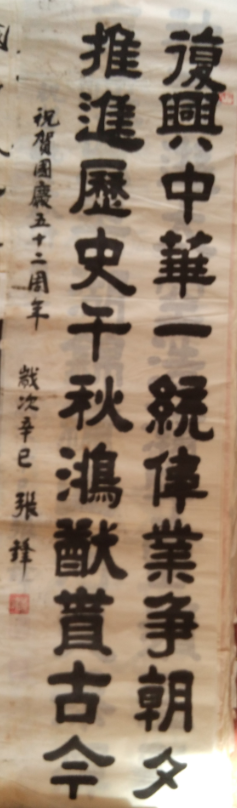 復興中華一統偉業争朝夕
推進歷史千秋鴻猷貫古今
祝賀國慶五十二周年
歲次辛巳 張鋒